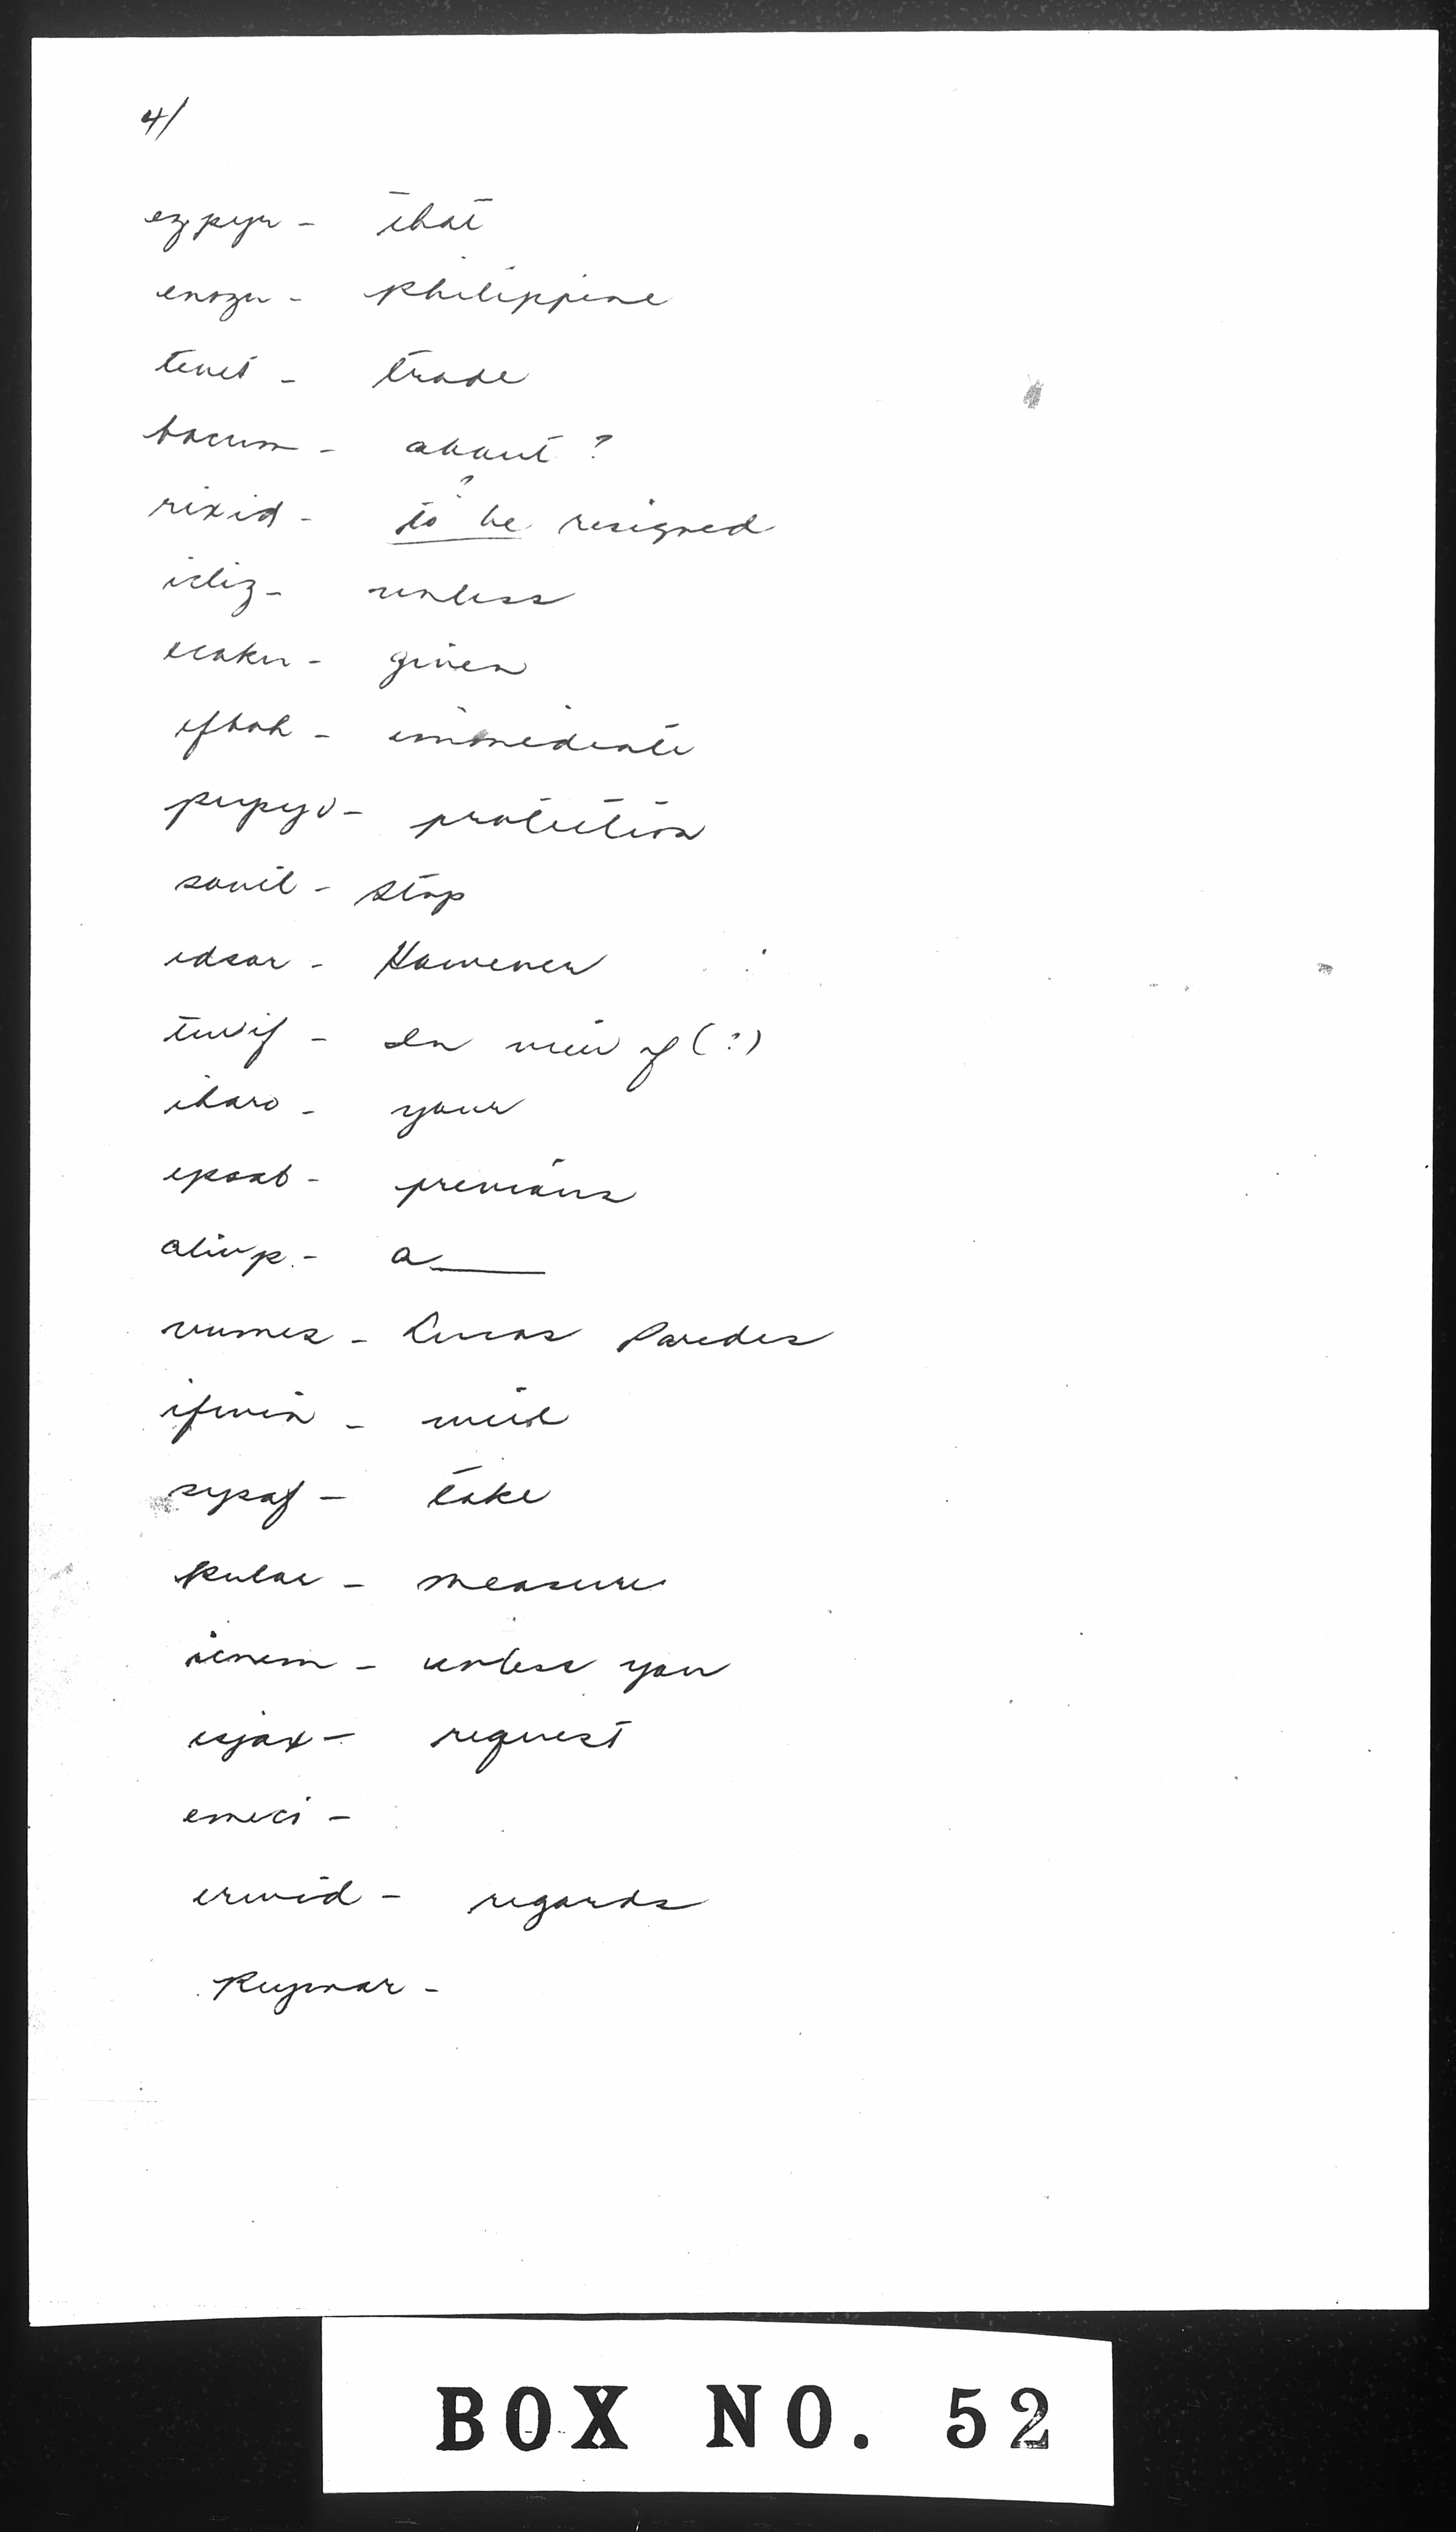 4/
ezpyr - that
enozu - Philippine
tenet - trade
bacum - about ?
rixid - to be resigned
?
icliz - unless
ecaku - given
efbah - immediate
pupyo - protection
sovil - stop
edsar - However
tuvif - In view of (?)
iharo - your
epsab - previous
alivp. - a____
vumez - Lucas Paredes
ifwin - will
sysaf - take
kulae - measure
icnem - unless you
esjax - request
emeci -
erwid - regards
Rujmar -
BOX NO. 52